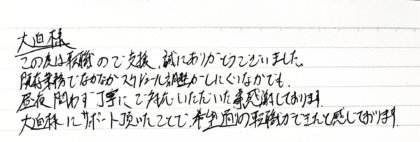 大迫様
この度は転職のご支援、誠にありがとうございました。
既存業務でなかなかスケジュール調整がしにくいなかでも、
昼夜問わず丁寧にご対応いただいた事感謝しております。
大迫様にサポート頂いたことで、希望通りの転職ができたと感じております。